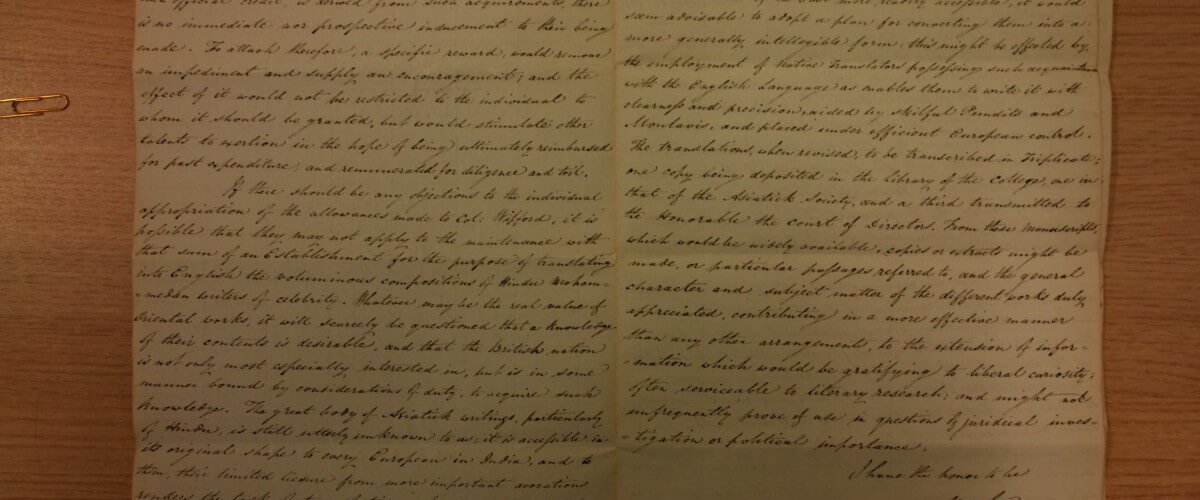 official credit is derived from such acquirements, there
is no immediate nor prospective inducement to their being
made. To attach therefore, a specific reward, would remove
an impediment and supply an encouragement; and the
effect of it would not be restricted to the individual to
whom it should be granted, but would stimulate other
talents to exertion in the hope of being ultimately reimbursed
for past expenditure, and remunerated for diligence and toil.
If there should be any objections to the individual
appropriation of the allowances made to Col: Wilford, it is
possible that they may not apply to the maintenance with
that sum of an Establishment for the purpose of translating
into English the voluminous compositions of Hindu Mohom=
=medan writers of celebrity. Whatever may be the real value of
Oriental works, it will scarcely be questioned that a knowledge
of their contents is desirable, and that the British nation
is not only most especially interested in, but is in some
manner bound by considerations of duty, to acquire such
knowledge. The great body of Asiatick writings, particularly
of Hindu, is still utterly unknown to us; it is accessible in
its original shape to every European in India, and to
them, their limited leisure from more important avocations
renders the task of
more readily accessible, it would
seem advisable to adopt a plan for converting them into a
more generally intelligible form: this might be effected by
the employment of Native Translators possessing such acquaintance
with the English Language as enables them to write it with
clearness and precision, aided by skilful Pundits and
Moulavis, and placed under efficient European control.
The translations, when revised, to be transcribed in Triplicate;
one copy being deposited in the Library of the College, one in
that of the Asiatick Society, and a third transmitted to
the Honorable the court of Directors. From those manuscripts,
which would be widely available, copies or extracts might be
made, or particular passages referred to, and the general
character and subject matter of the different works duly
appreciated, contributing in a more effective manner
than any other arrangements, to the extension of infor=
=mation which would be gratifying to liberal curiosity;
often serviceable to literary research; and might not
unfrequently prove of use in questions of juridical inves=
=tigation or political importance.
I have the honor to be